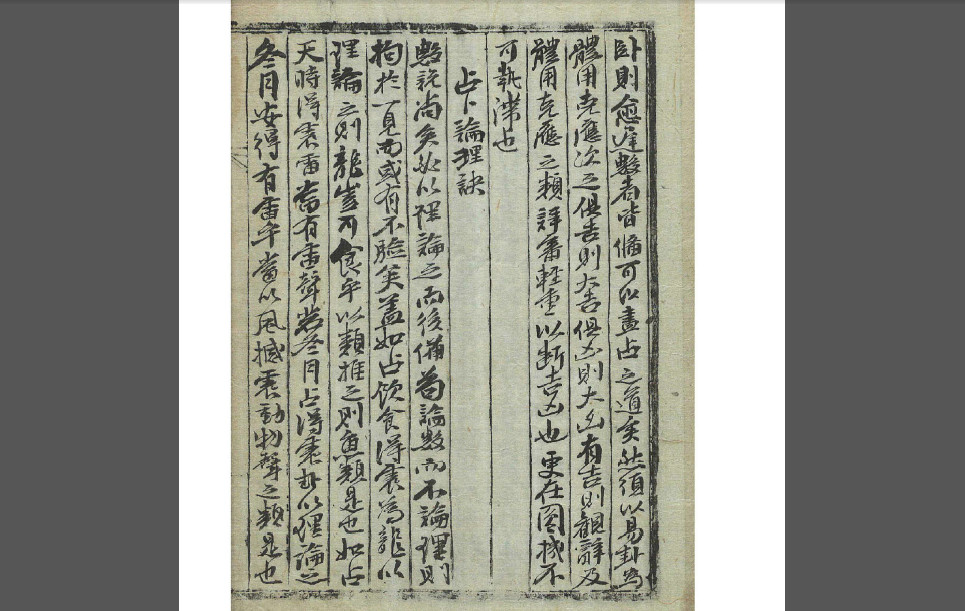 卧則愈遲數者皆備可以盡占之道矣然須以易卦爲
體用克應次之俱吉則大吉俱凶則大凶有吉則觀辭及
體用克應之類詳審輕重以斷吉凶也更在圓機不
可執滯也
占卜論理訣
數說尚矣必以理論之而後備苟論數而不論理則
拘於一見而或有不驗矣盖如占飲食得震爲龍以
理論之則龍豈可食乎以類推之則魚類是也如占
天時得震雷當有雷聲若冬月占得震卦以理論之
冬月安得有雷乎當以風撼震動物聲之類是也